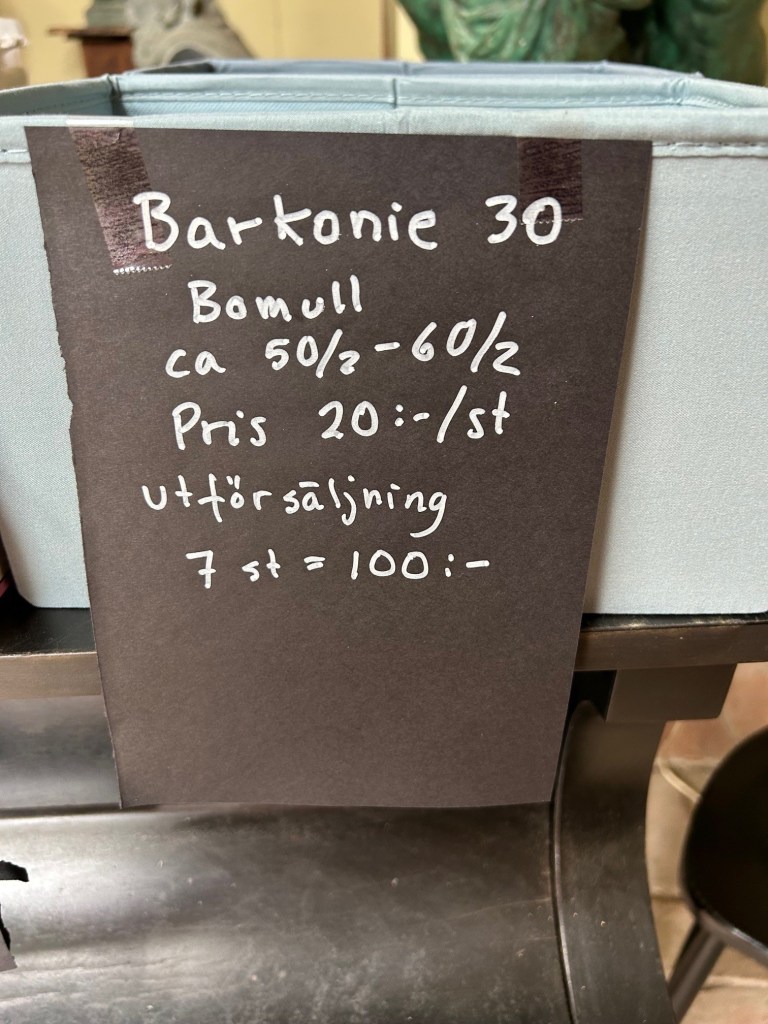 Barkonie 30
Bomull
ca 50/2-60/2
Pris 20:-/st
utförsäljning
7 st = 100:-